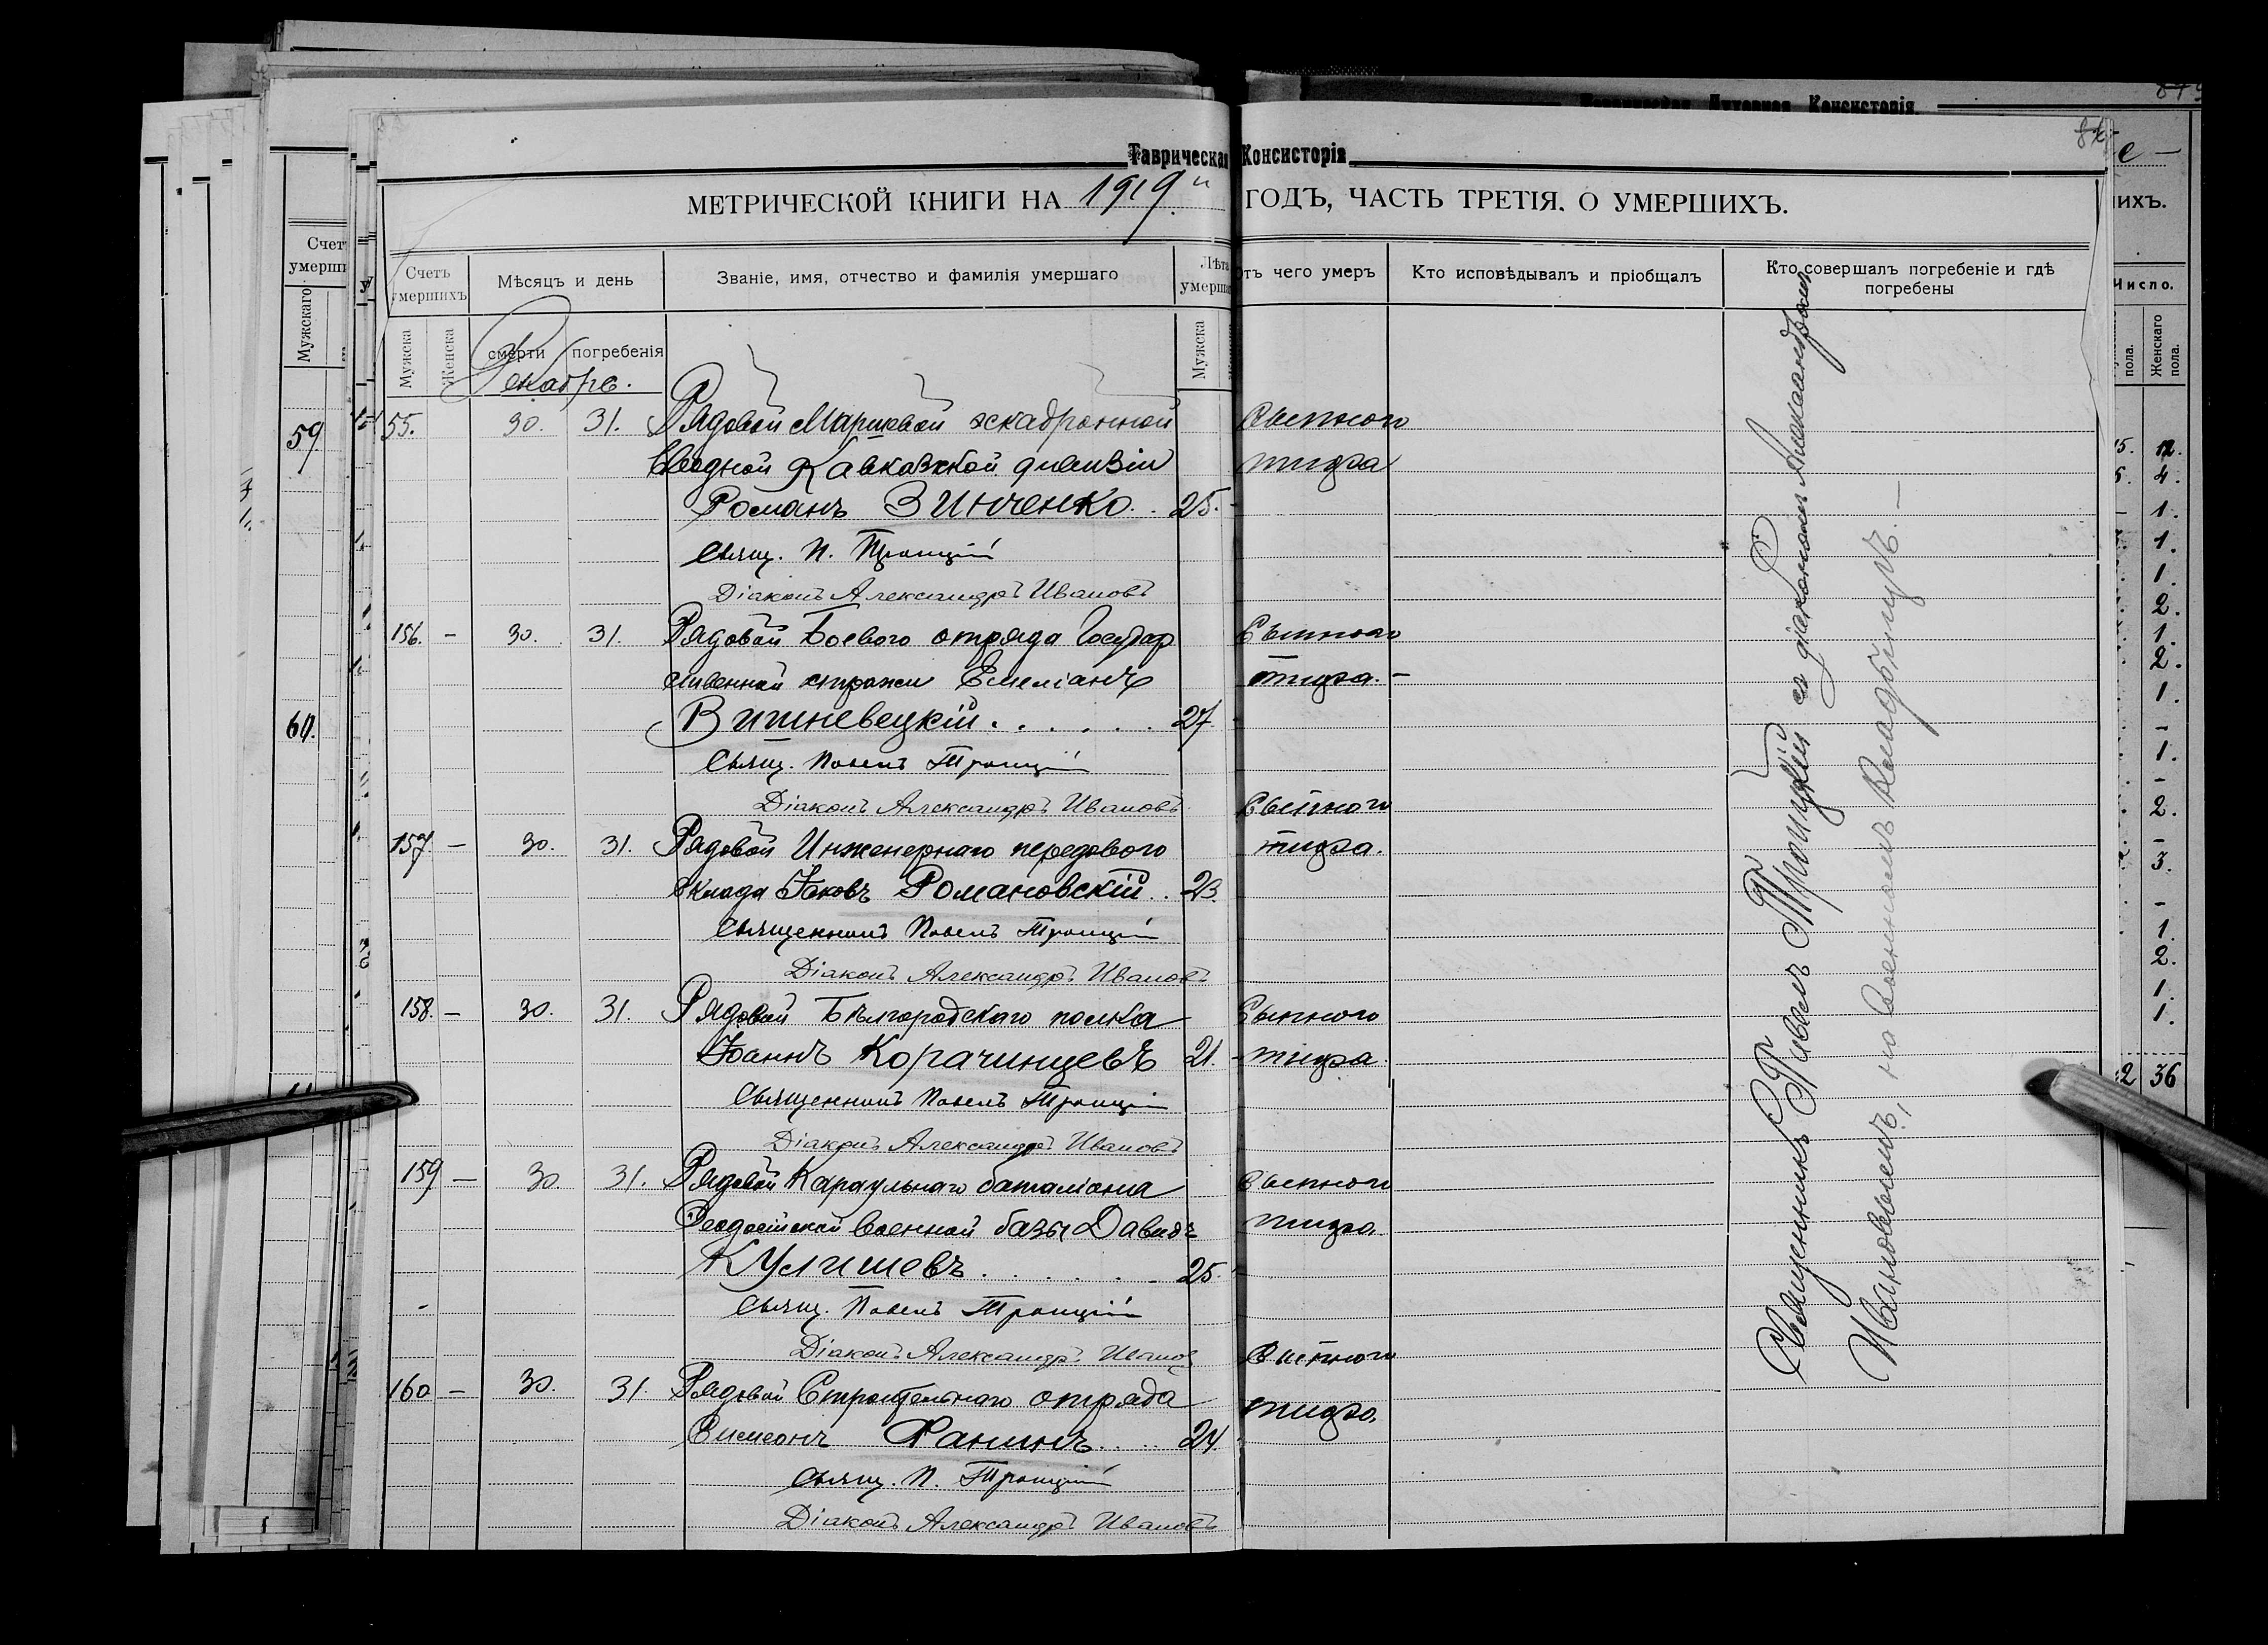 Таврическая Консисторія
МЕТРИЧЕСКОЙ КНИГИ НА 1919 ГОДЪ, ЧАСТЬ ТРЕТІЯ. О УМЕРШИХЪ.
Счетъ умершихъ
Мѣсяцъ и день
Званіе, имя, отчество и фамилія умершаго
Лѣта
Отъ чего умеръ
Кто исповѣдывалъ и пріобщалъ
Кто совершалъ погребеніе и гдѣ погребены
Мужска
Женска
смерти
погребенія
Мужска
Декабрь.
55. 30. 31. Рядовой Маршевой эскадронной Сыпного
Сводной Кавказской дивизіи тифа
Романъ Зинченко. 25.
Свящ. П. Троицкій
Діаконъ Александръ Ивановъ
156. - 30. 31. Рядовой Боевого отряда Государ Сыпного
ственной стражи Емеліанъ тифа. -
Вишневецкій. 27.
Свящ. Павелъ Троицкій
Діаконъ Александръ Ивановъ Сыпного
157. - 30. 31. Рядовой Инженернаго передового тифа.
склада Іаковъ Романовскій. 23.
Священникъ Павелъ Троицкій
Діаконъ Александръ Ивановъ
158. - 30. 31. Рядовой Бѣлгородскаго полка Сыпного
Іоаннъ Корачинцевъ 21. тифа.
Священникъ Павелъ Троицкій
Діаконъ Александръ Ивановъ
159 - 30. 31. Рядовой Караульнаго баталіона Сыпного
Феодосійской военной базы Давидъ тифа.
Кулишовъ 25.
Свящ. Павелъ Троицкій
Діаконъ Александръ Ивановъ Сыпного
160 - 30. 31. Рядовой Строительнаго отряда тифа.
Симеонъ Фанинъ 24.
Свящ. П. Троицкій
Діаконъ Александръ Ивановъ
Священникъ Павелъ Троицкій съ діакономъ Александромъ
Ивановымъ, на военномъ кладбищѣ. -
Счет
умерши
Мужскаго
59
60.
Консисторія
ИХЪ.
Число.
пола.
Женскаго пола.
12.
4.
1.
1.
1.
2.
1.
2.
1.
-
1.
-
2.
-
3.
-
1.
2.
1.
1.
36